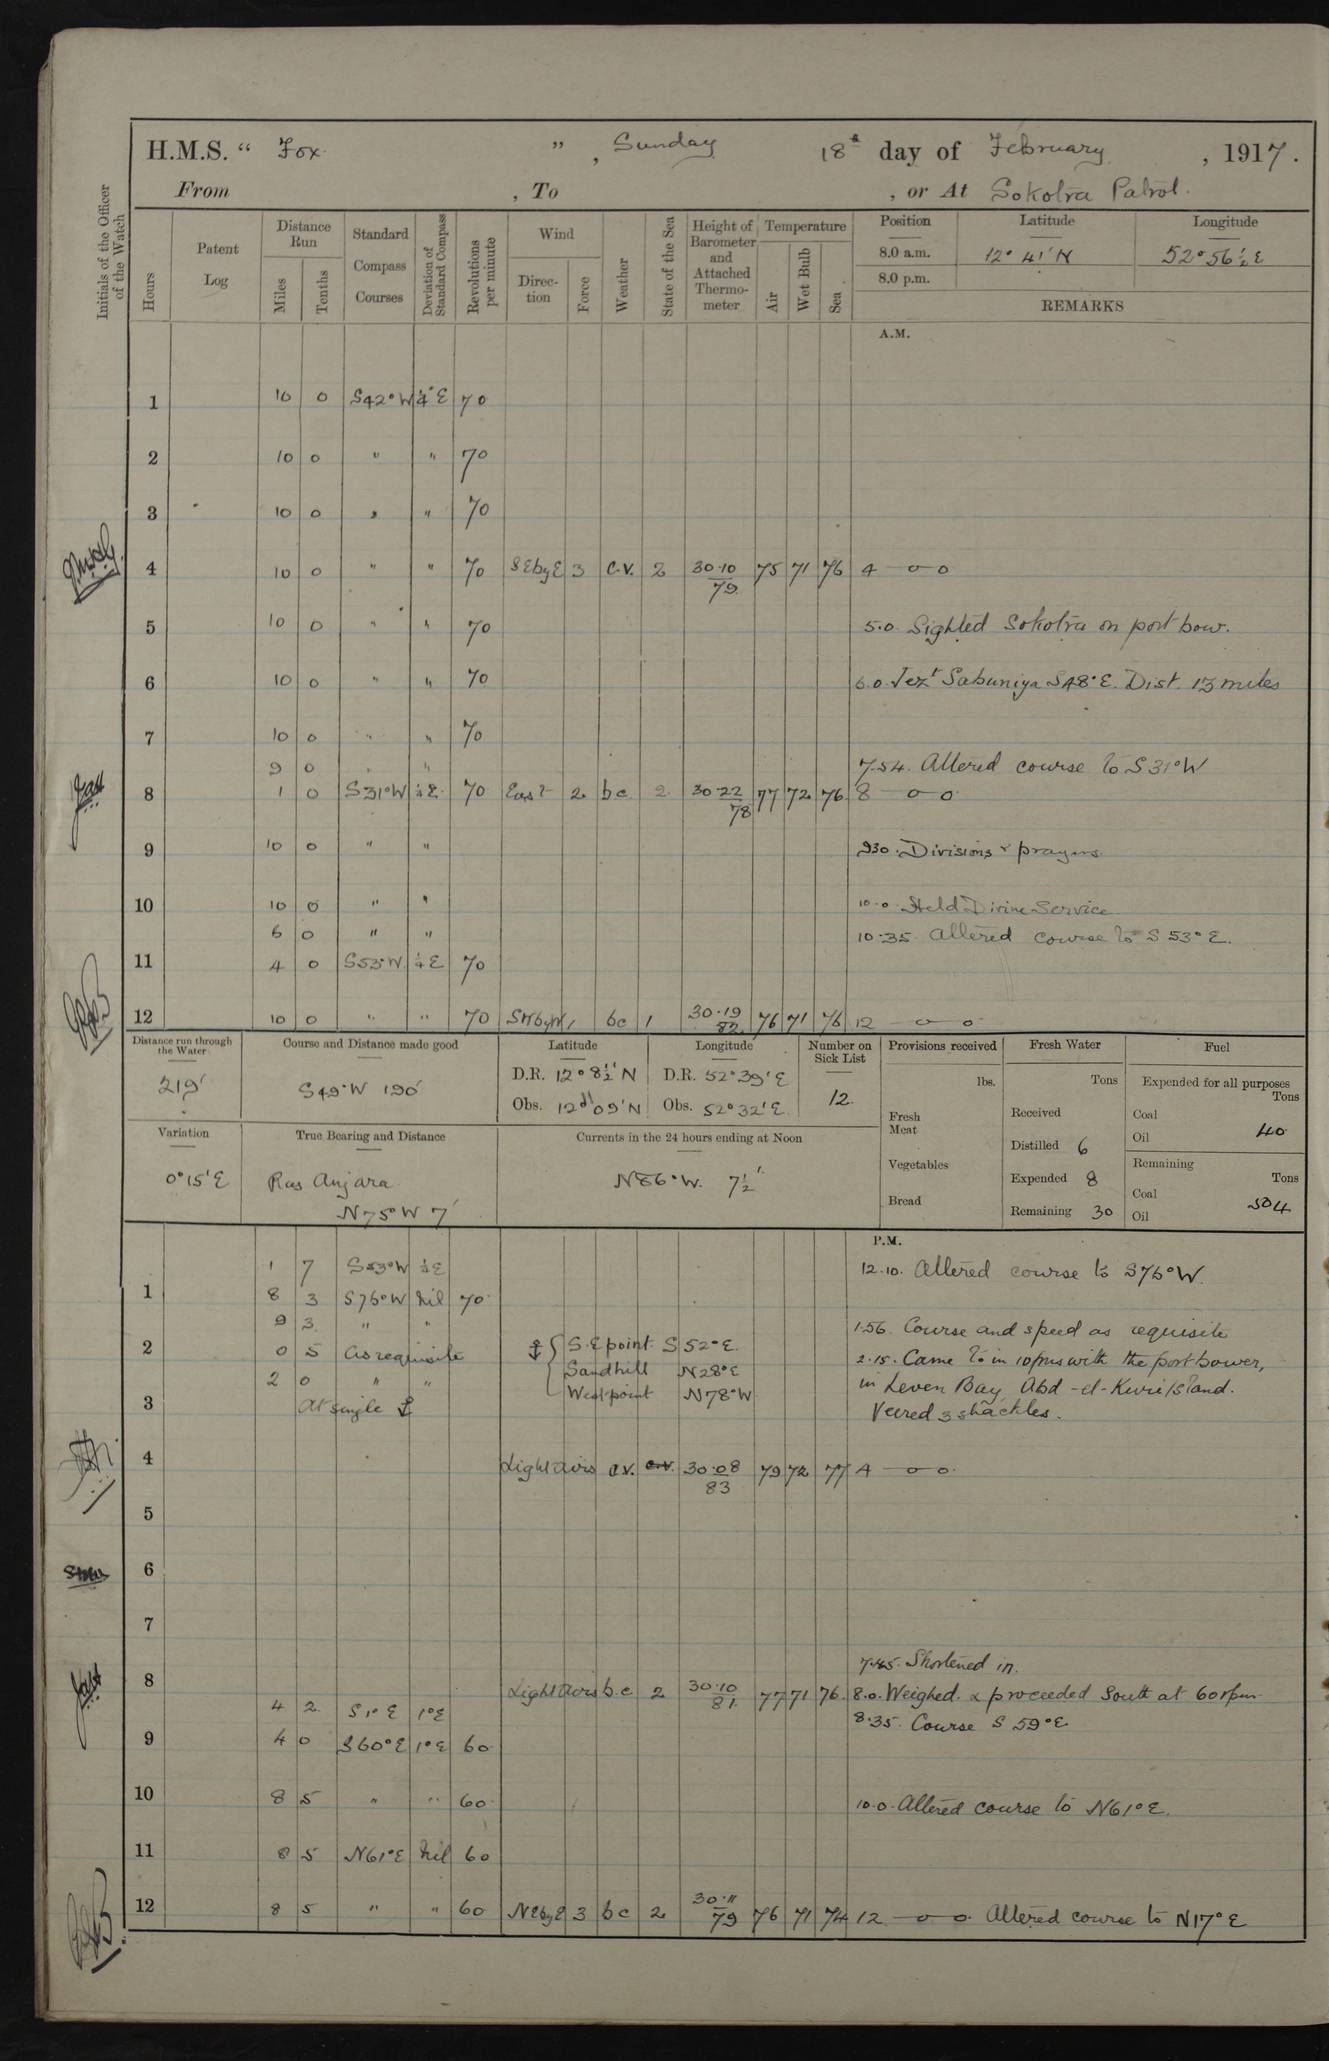 H.M.S. “ Fox ” , Sunday 18th day of February , 1917.
From , To , or At Sokotra Patrol.
Initials of the Officer of the Watch
Hours
Patent Log
Distance Run
Miles
Tenths
Standard Compass Courses
Deviation of Standard Compass
Revolutions per minute
Wind
Direction
Force
Weather
State of the Sea
Height of Barometer and Attached Thermometer
Temperature
Air
Wet Bulb
Sea
Position Latitude Longitude
8.0 a.m. 12° 41' N 52° 56½ E
8.0 p.m.
REMARKS
A.M.
1 10 0 S42°W ¼°E 70
2 10 0 " " 70
3 10 0 " " 70
4 10 0 " " 70 SEbyE 3 c.v. 2 30.10 79 75 71 76 4 —o—o
5 10 0 " " 70 5.0 Sighted Sokotra on port bow.
6 10 0 " " 70 6.0 Jezt Sabuniya S48°E. Dist. 13 miles
7 10 0 " " 70
9 0 " " 7.54. Altered course to S31°W
8 1 0 S31°W ¼E 70 East 2 bc 2 30.22 78 77 72 76 8 —o—o
9 10 0 " " 9.30. Divisions & prayers.
10 10 0 " " 10.0 Held Divine Service
6 0 " " 10.35 Altered course to S 53°E.
11 4 0 S53°W ¼E 70
12 10 0 " " 70 SWbyW 1 bc 1 30.19 82 76 71 76 12 —o—o
Distance run through the Water
219'
Course and Distance made good
S49°W 190'
Latitude
D.R. 12° 8½' N
Obs. 12° 09' N
Longitude
D.R. 52° 39' E
Obs. 52° 32' E
Number on Sick List
12.
Provisions received
lbs.
Fresh Meat
Vegetables
Bread
Fresh Water
Tons
Received
Distilled 6
Expended 8
Remaining 30
Fuel
Expended for all purposes
Tons
Coal
Oil 40
Remaining
Tons
Coal 504
Oil
Variation
0°15'E
True Bearing and Distance
Ras Anjara
N75°W 7'
Currents in the 24 hours ending at Noon
N86°W. 7½'
P.M.
1 7 S53°W ¼E 12.10. Altered course to S76°W.
1 8 3 S76°W Nil 70
9 3 " " 1.56. Course and speed as requisite
2 0 5 As requisite ⚓ { S.E point S 52°E. 2.15. Came to in 10 fms with the port bower,
2 0 " " Sandhill N28°E in Leven Bay, Abd-el-Kuri Island.
3 At single ⚓ West point N78°W Veered 3 shackles.
4 Light airs c.v. c.v. 30.08 83 79 72 77 4 —o—o
5
6
7
7.45. Shortened in.
8 Light airs b.c 2 30.10 81 77 71 76. 8.0. Weighed & proceeded South at 60 rpm
4 2 S 1° E 1°E 8.35. Course S 59°E.
9 4 0 S60°E 1°E 60
10 8 5 " " 60 10.0. Altered course to N61°E.
11 8 5 N61°E Nil 60
12 8 5 " " 60 NEbyE 3 bc 2 30.11 79 76 71 74 12 —o—o Altered course to N17°E